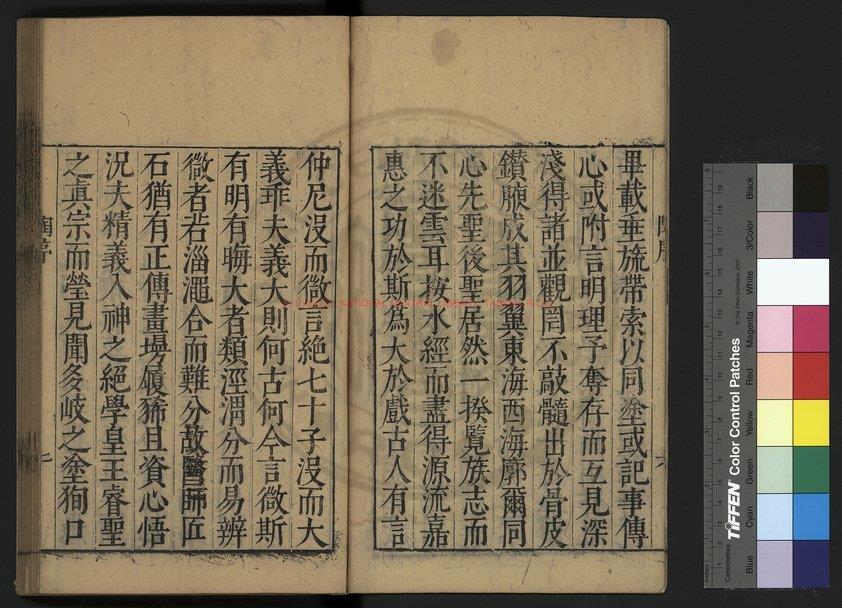 畢載垂旒帶索以同塗或記事傳
心或附言明理予奪存而互見深
淺得諸並觀罔不敲髓出於骨皮
鑚腴成其羽翼東海西海廓爾同
心先聖後聖居然一揆覽族志而
不迷雲耳按水經而盡得源流嘉
惠之功於斯為大於戲古人有言
仲尼沒而微言絶七十子沒而大
義乖夫義大則何古何今言微斯
有明有晦大者類涇渭分而易辨
微者若淄澠合而難分故醫師匠
石猶有正傳畫墁履狶且資心悟
況夫精義入神之絶學皇王睿聖
之真宗而瑩見聞多岐之塗狥口
TIFFEN Color Control Patches
© The Tiffen Company, 2007
Inches
Centimetres
Blue
Cyan
Green
Yellow
Red
Magenta
White
3/Color
Black